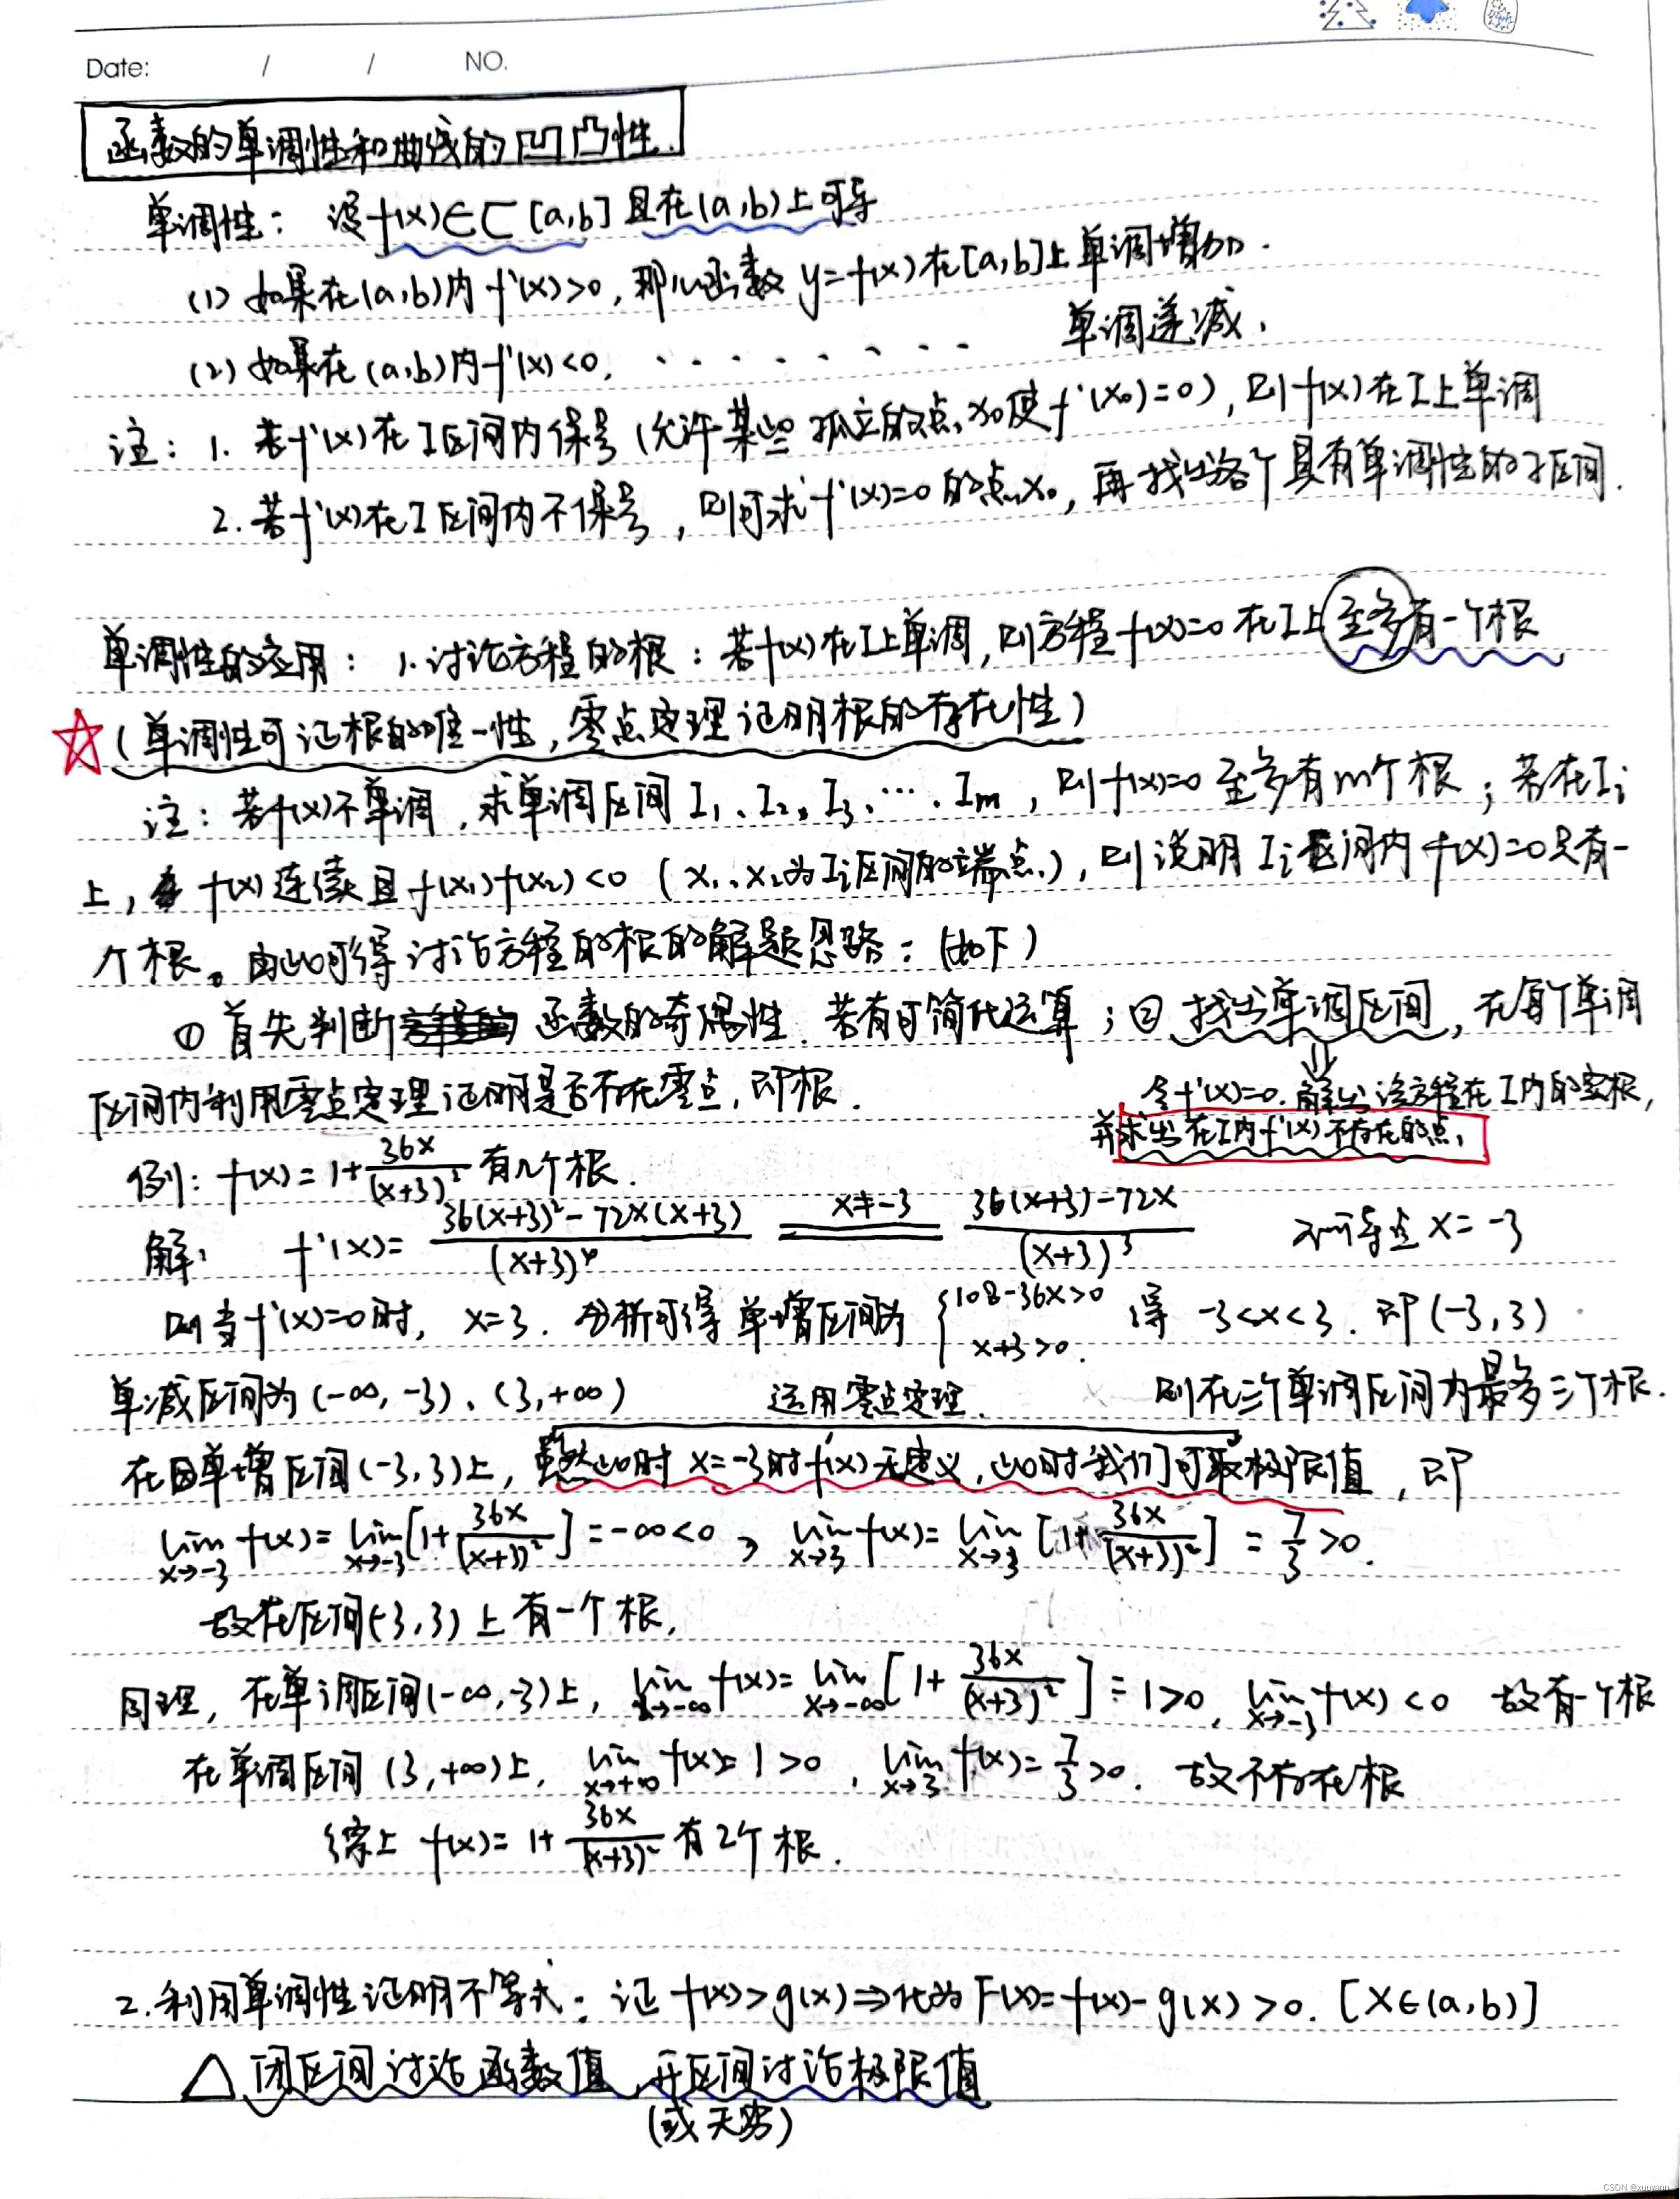 Date: / / NO.
函数的单调性和曲线的凹凸性.
单调性: 设f(x)∈C[a,b]且在(a,b)上可导
(1) 如果在(a,b)内f'(x)>0, 那么函数 y=f(x)在[a,b]上单调增加.
(2) 如果在(a,b)内f'(x)<0, ········ 单调递减.
注: 1. 若f'(x)在I区间内保号(允许某些孤立的点x₀使f'(x₀)=0), 则f(x)在I上单调
2. 若f'(x)在I区间内不保号, 则可求f'(x)=0的点x₀, 再找出各个具有单调性的子区间.
单调性的应用: 1. 讨论方程的根: 若f(x)在I上单调, 则方程f(x)=0在I上至多有一个根
☆(单调性可证根的唯一性, 零点定理证明根的存在性)
注: 若f(x)不单调, 求单调区间I₁、I₂、I₃、…、Iₘ, 则f(x)=0至多有m个根; 若在Iᵢ
上, f(x)连续且f(x₁)f(x₂)<0 (x₁、x₂为Iᵢ区间的端点), 则说明Iᵢ区间内f(x)=0只有一
个根。由此可得讨论方程的根的解题思路: (如下)
① 首先判断函数的奇偶性. 若有可简化运算; ② 找出单调区间, 在每个单调
区间内利用零点定理证明是否存在零点, 即根.
⇓
令f'(x)=0. 解出该方程在I内的实根,
并求出在I内f'(x)不存在的点.
例: f(x)=1+36x/(x+3)² 有几个根.
解: f'(x)= [36(x+3)²-72x(x+3)]/(x+3)⁴ ==x≠-3== [36(x+3)-72x]/(x+3)³ 不可导点 x=-3
则当f'(x)=0时, x=3. 分析可得单增区间为 {108-36x>0 x+3>0. 得 -3<x<3. 即(-3,3).
单减区间为(-∞,-3)、(3,+∞) 运用零点定理. 则在三个单调区间内最多三个根.
在单增区间(-3,3)上, 虽然此时x=-3时f(x)无定义, 此时我们可取极限值, 即
lim x→-3 f(x)= lim x→-3 [1+36x/(x+3)²]=-∞<0, lim x→3 f(x)= lim x→3 [1+36x/(x+3)²] = 7/3>0.
故在区间(-3,3)上有一个根.
同理, 在单调区间(-∞,-3)上, lim x→-∞ f(x)= lim x→-∞ [1+36x/(x+3)²]=1>0, lim x→-3 f(x)<0 故有一个根
在单调区间(3,+∞)上, lim x→+∞ f(x)=1>0, lim x→3 f(x)=7/3>0. 故不存在根
综上 f(x)=1+36x/(x+3)² 有2个根.
2. 利用单调性证明不等式: 证 f(x)>g(x)⇒化为F(x)=f(x)-g(x)>0. [x∈(a,b)]
△ 闭区间讨论函数值, 开区间讨论极限值
(或无穷)
CSDN @xuuyann